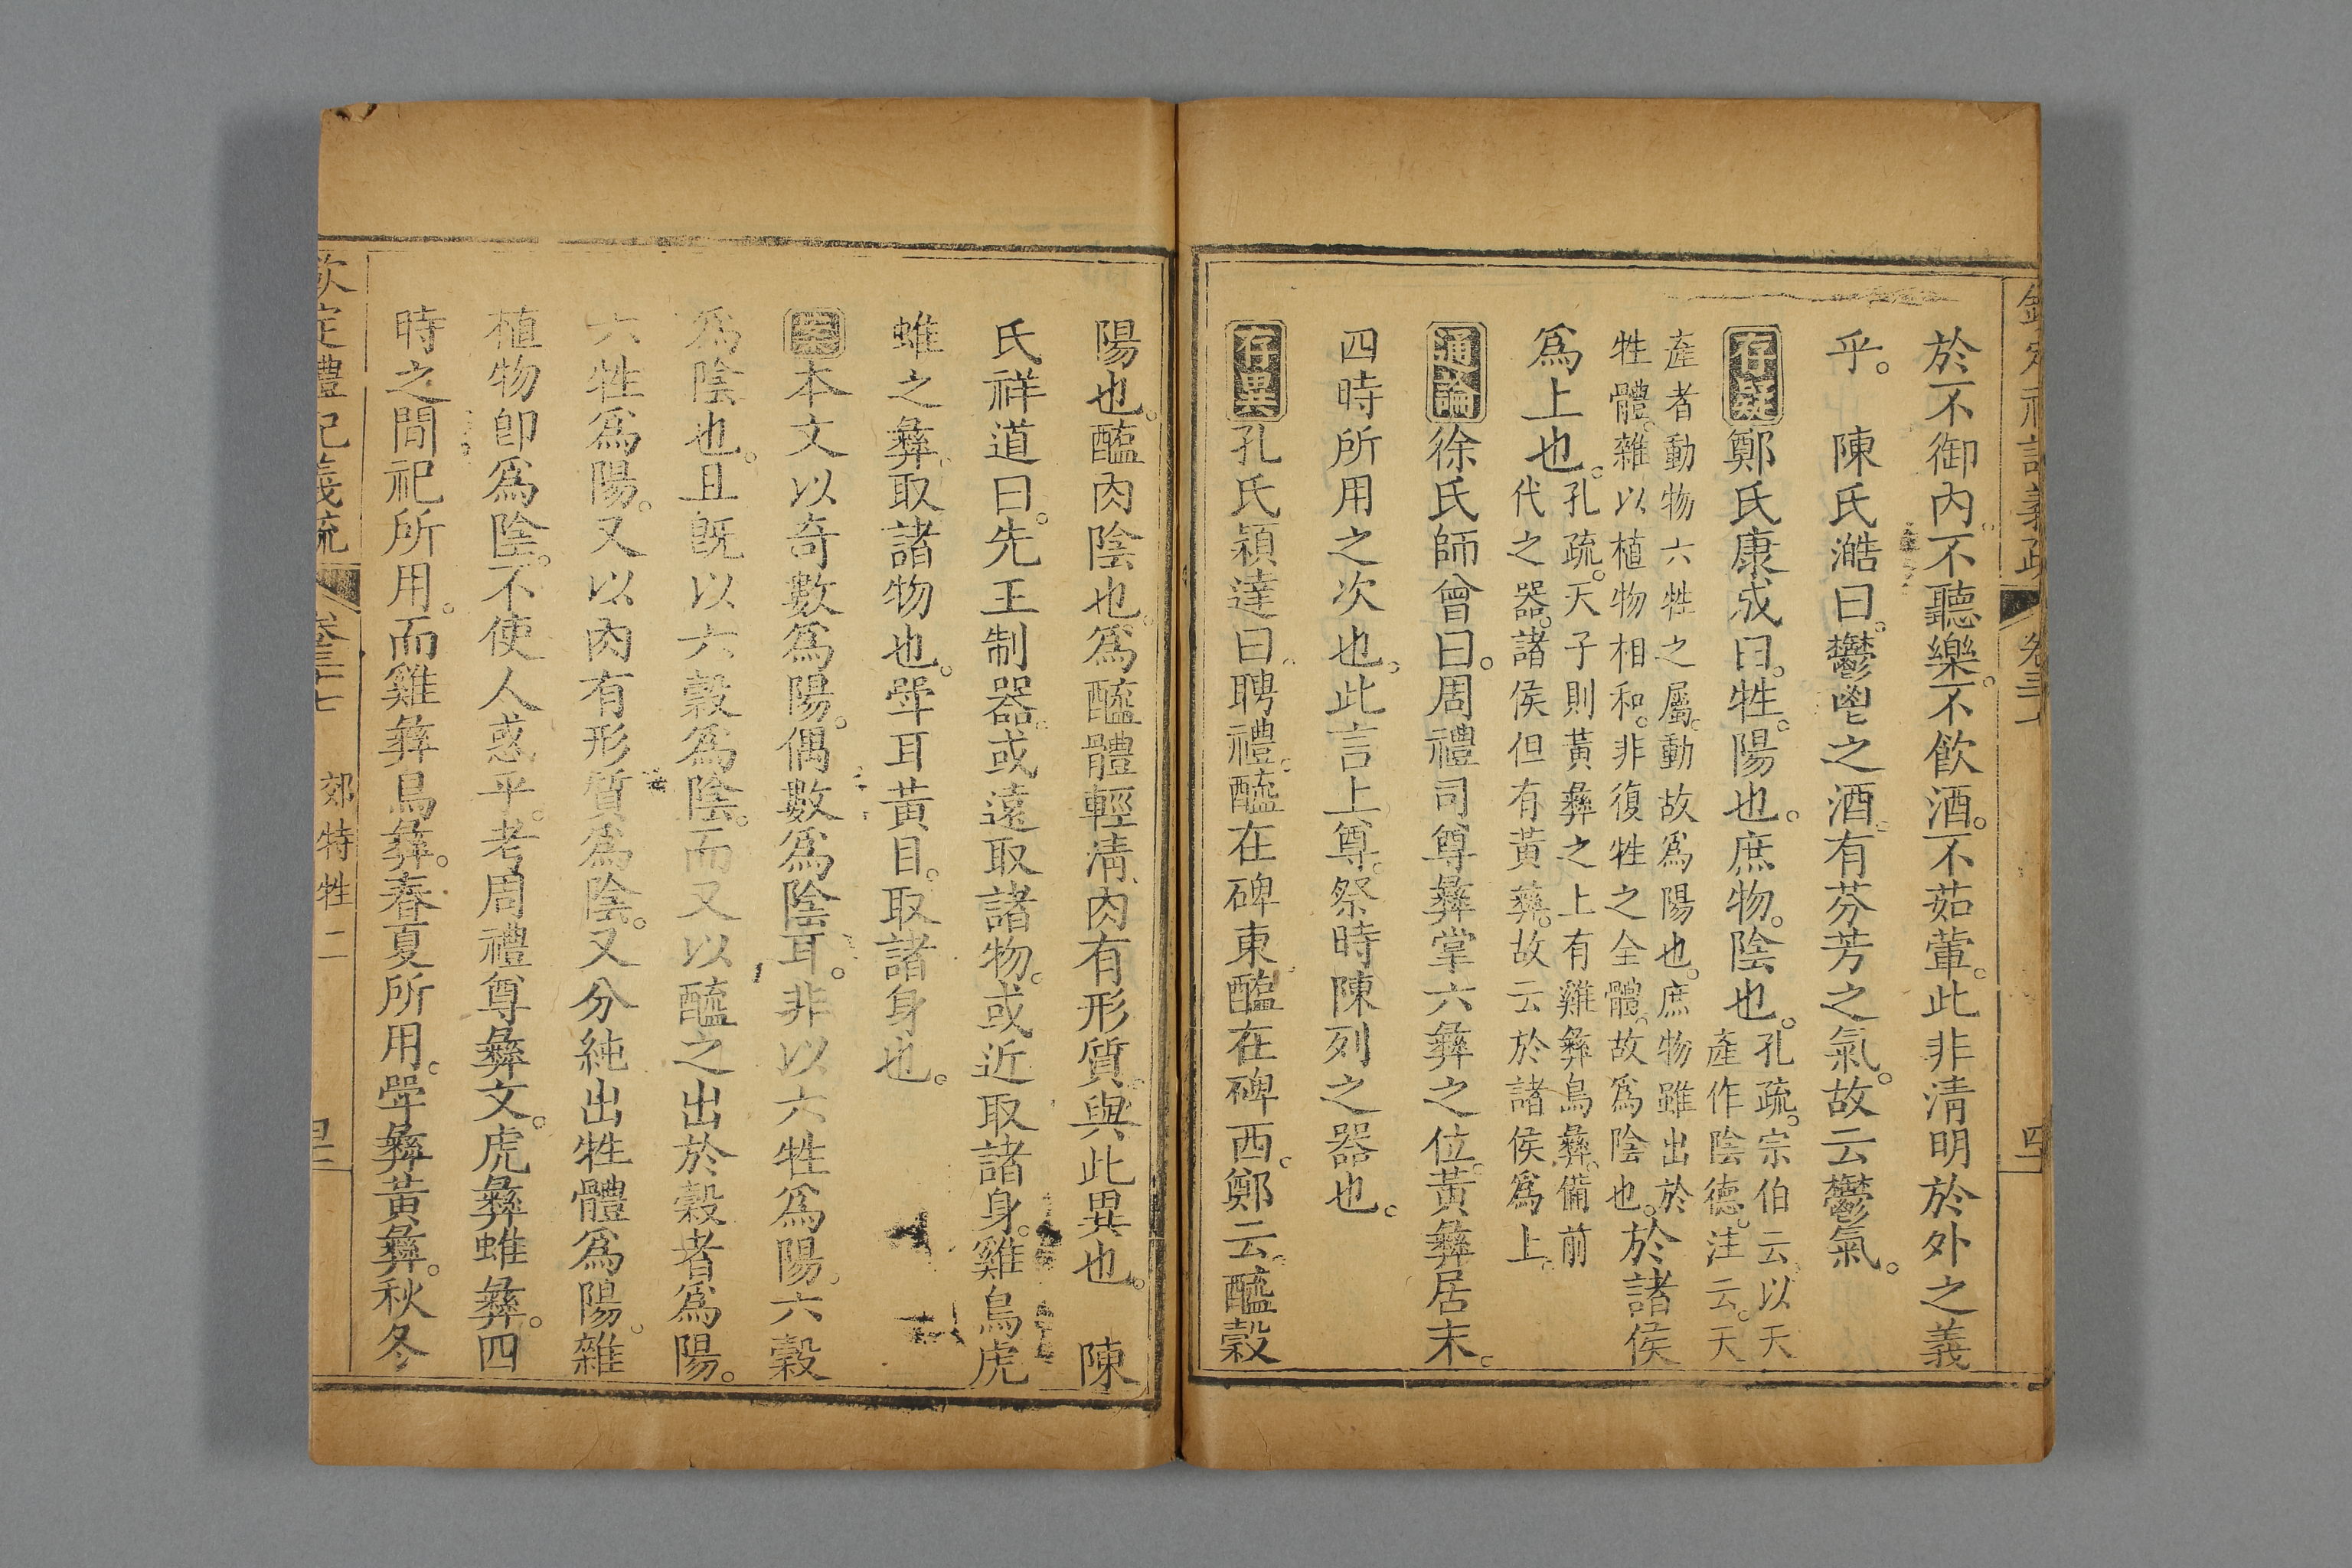 於不御內不聽樂。不飲酒。不茹葷。此非清明於外之義
乎。　陳氏澔曰。鬱鬯之酒有芬芳之氣。故云鬱氣。
存疑鄭氏康成曰。牲。陽也。庶物。陰也。孔疏。宗伯云。以天
產作陰德。注云。天
產者動物六牲之屬。動故爲陽也。庶物雖出於
牲體。雜以植物相和。非復牲之全體。故爲陰也。於諸侯
爲上也。孔疏。天子則黃彝之上有雞彝鳥彝。備前
代之器。諸侯但有黃彝。故云於諸侯爲上。
通論徐氏師曾曰。周禮司尊彝掌六彝之位。黃彝居末。
四時所用之次也。此言上尊。祭時陳列之器也。
存異孔氏穎達曰。聘禮。醯在碑東。醢在碑西。鄭云。醯穀
陽也。醢肉陰也。爲醯體輕清。肉有形質。與此異也。　陳
氏祥道曰。先王制器。或遠取諸物。或近取諸身。雞鳥虎
蜼之彝。取諸物也。斝耳黃目。取諸身也。
案本文以奇數爲陽。偶數爲陰耳。非以六牲爲陽。六穀
爲陰也。且旣以六穀爲陰。而又以醯之出於穀者爲陽。
六牲爲陽。又以肉有形質爲陰。又分純出牲體爲陽。雜
植物卽爲陰。不使人惑乎。考周禮尊彝文。虎彝蜼彝。四
時之間祀所用。而雞彝鳥彝。春夏所用。斝彝黃彝。秋冬
欽定禮記義疏　卷三十七　郊特牲二